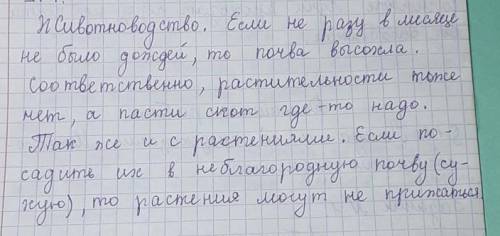 Животноводство. Если не разу в месяце
не было дождей, то почва высохла.
Соответственно, растительности тоже
нет, а пасти скот где-то надо.
Так же и с растениями. Если по-
садить их в неблагородную почву (су-
хую), то растения могут не прижаться.